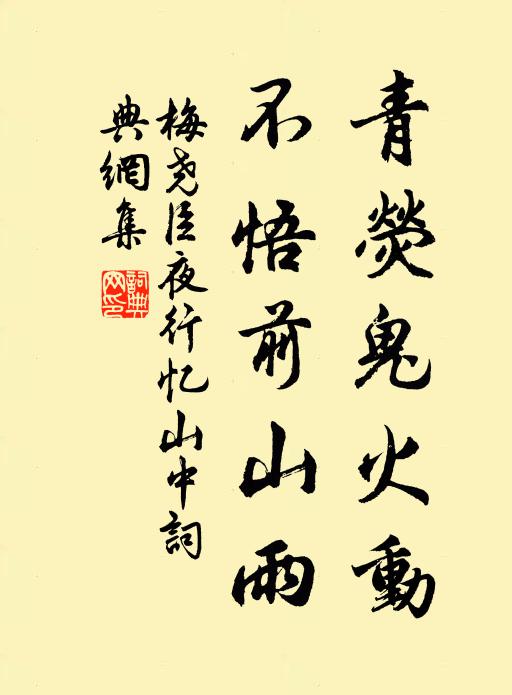 青熒鬼火動
不悟前山雨
梅尧臣夜行忆山中詞
典網集
詞典
网印